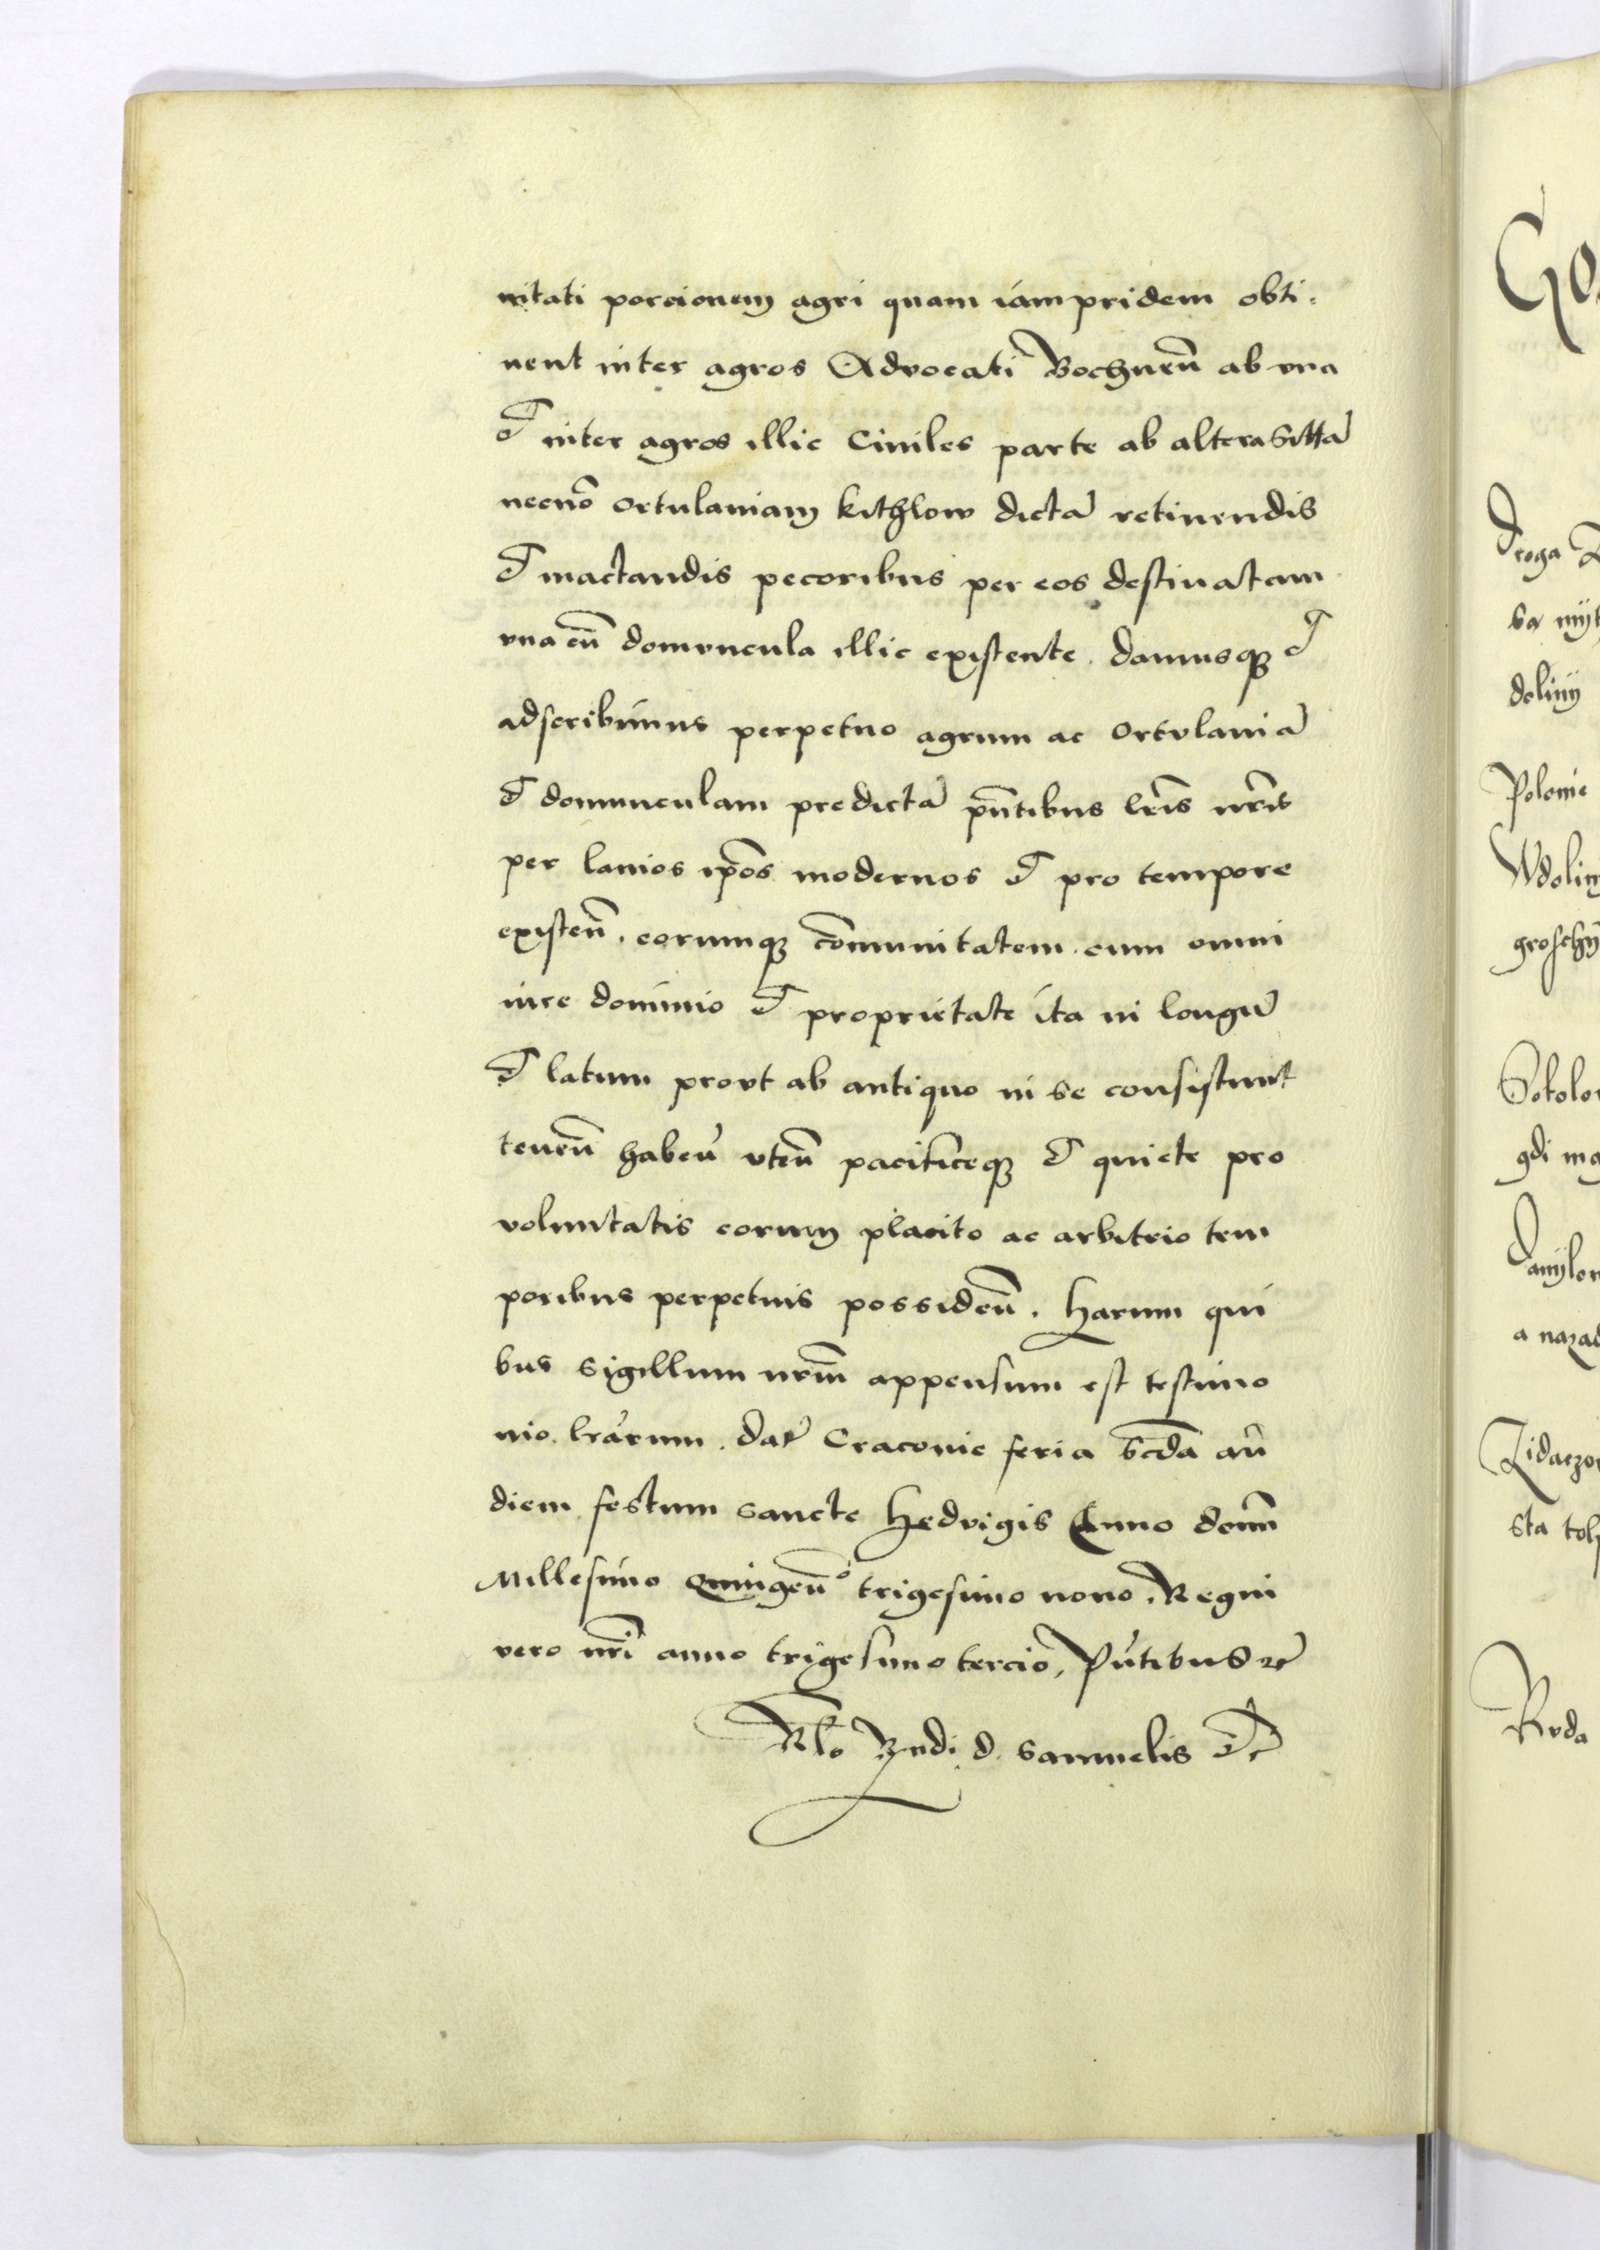 nitati porcionem agri quam iampridem obti:
nent inter agros Advocati Bochnen̄ ab vna
et inter agros illic Ciuiles parte ab altera sittā
necnō ortulaniam kithlow dictā retinendis
et mactandis pecoribus per eos destinatam
vna cū domuncula illic existente. damusq3 et
adscribimus perpetuo agrum ac ortulaniā
et domunculam predictā pn̄tibus lr̄is nr̄is
per lanios ip̄os modernos et pro tempore
existen̄. eorumq3 cōmunitatem. cum omni
iure dominio et proprietate ita in longū
et latum prout ab antiquo in se consistunt
tenen̄ haben̄ vten̄ pacificeq3 et quiete pro
voluntatis eorum placito ac arbitrio tem
poribus perpetuis possiden̄. Harum qui
bus sigillum nr̄m appensum est testimo
nio. lr̄arum. dat Cracovie feria sc̄da an̄
diem festum sancte Hedvigis Anno domī
Millesimo Quingen̄o trigesimo nono. Regni
vero nr̄i anno trigesimo tercio, Pn̄tibus etc
Rlo Rndi d. Samuelis etc
Droga
doliny
Polonie
a nazad
Ruda